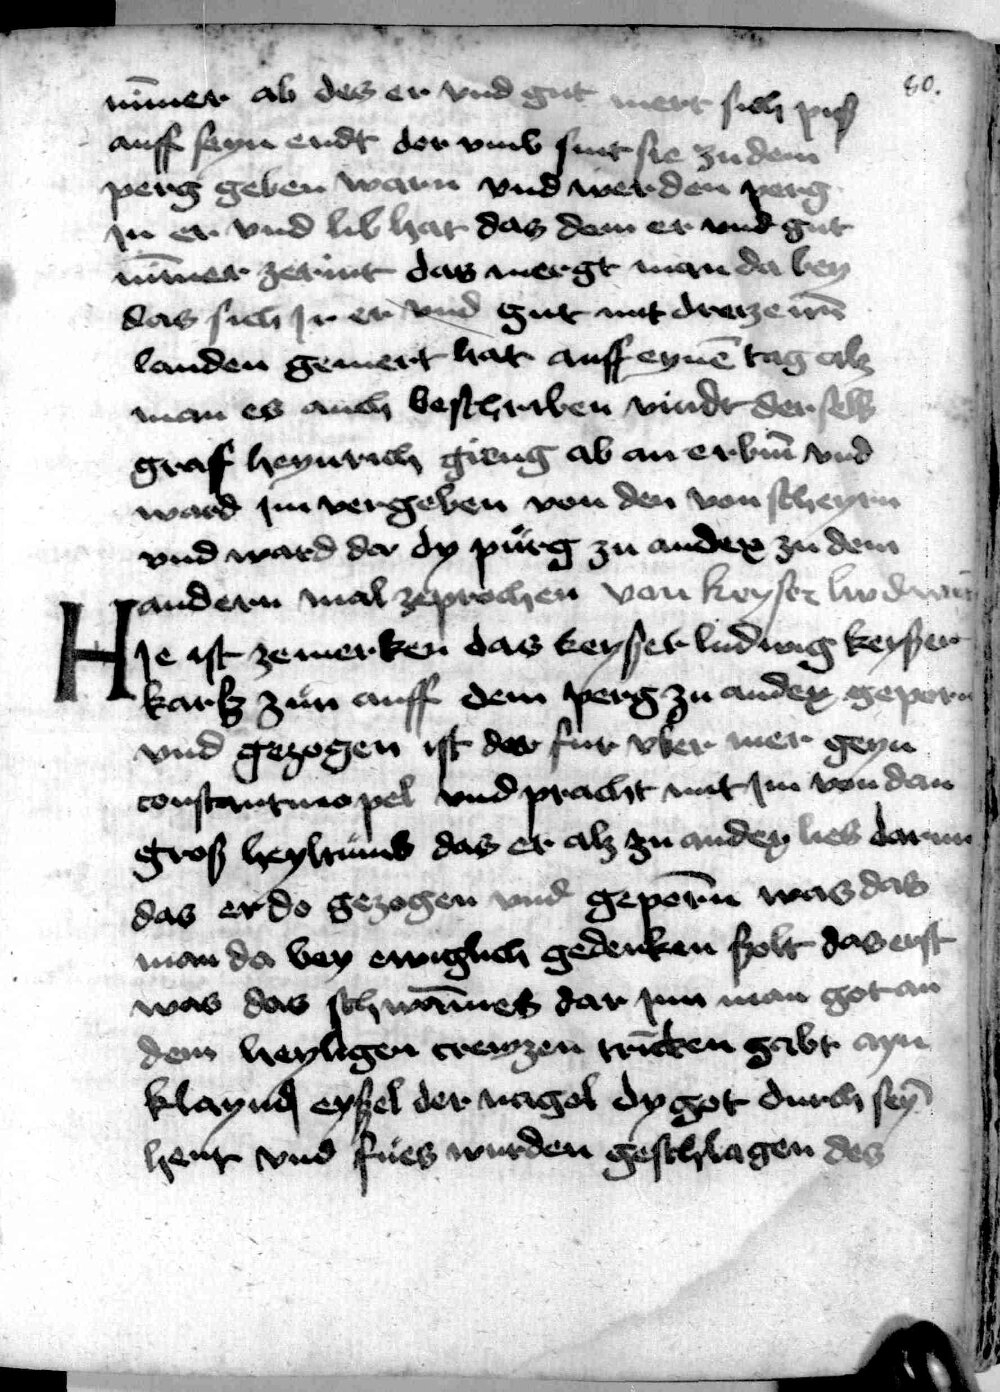 80.
nı̄mer ab des er vnd gut mert sich piß
auff seyn endt dor vmb sint sie zu dem
perg geben warn vnd wer den perg
in er vnd lib hat das dem er vnd gut
nı̄mer zerint das mergt man da bey
das sich Jr er vnd gut mit dreizehn̄
landen gemert hat auff eynē tag alz
man es auch beschriben vindt der selb
graf heynrich gieng ab an erbin̄ vnd
ward Jm vergeben von den von scheyrn
vnd ward der dy pürg zu andex zu dem
andern mal zeprochen von keyser ludwig
HJe ist ze merken das keyßer ludwig keyßer
karls zün auff dem perg zu andex geporn
vnd gezogen ist der fur vber mer geyn
constantinopel vnd pracht mit Jm von dan
groß heyltüms das er alz zu andex lies darum
das er do gezogen vnd geporn̄ was das
man da bey ewiglich gedenken ßolt das erst
was das schwām̄es dar Jnn man got an
dem heyligen crewzen trīcken gabt ayn
klaynd eyßel der nagel dy got durch seȳ
hent vnd fües wurden geschlagen des